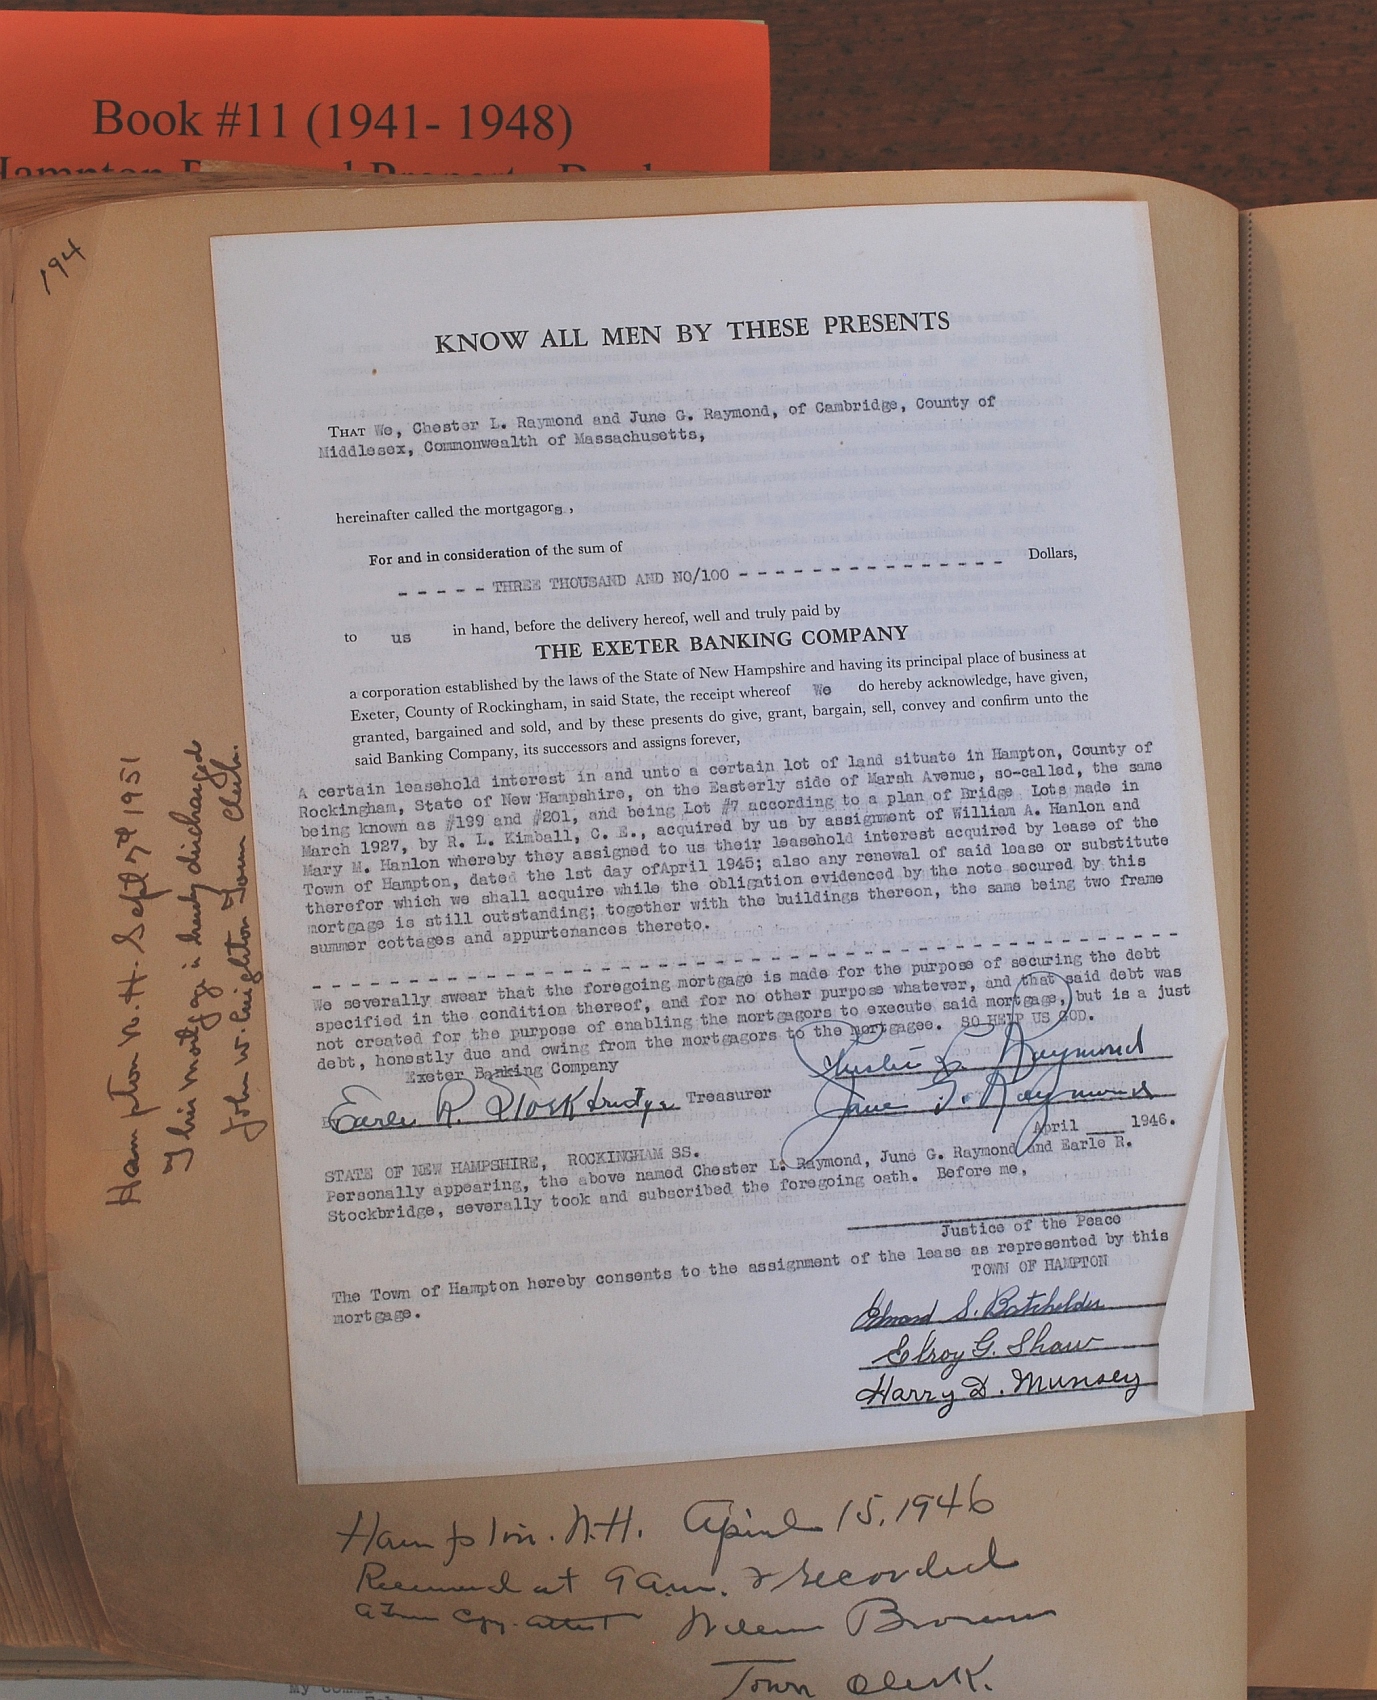 Book #11 (1941- 1948)
194
KNOW ALL MEN BY THESE PRESENTS
THAT We, Chester L. Raymond and June G. Raymond, of Cambridge, County of
Middlesex, Commonwealth of Massachusetts,
hereinafter called the mortgagors,
For and in consideration of the sum of
- - - - - THREE THOUSAND AND NO/100 - - - - - - - - - - - - - - - Dollars,
to us in hand, before the delivery hereof, well and truly paid by
THE EXETER BANKING COMPANY
a corporation established by the laws of the State of New Hampshire and having its principal place of business at
Exeter, County of Rockingham, in said State, the receipt whereof We do hereby acknowledge, have given,
granted, bargained and sold, and by these presents do give, grant, bargain, sell, convey and confirm unto the
said Banking Company, its successors and assigns forever,
A certain leasehold interest in and unto a certain lot of land situate in Hampton, County of
Rockingham, State of New Hampshire, on the Easterly side of Marsh Avenue, so-called, the same
being known as #199 and #201, and being Lot #7 according to a plan of Bridge Lots made in
March 1927, by R. L. Kimball, C. E., acquired by us by assignment of William A. Hanlon and
Mary M. Hanlon whereby they assigned to us their leasehold interest acquired by lease of the
Town of Hampton, dated the 1st day ofApril 1945; also any renewal of said lease or substitute
therefor which we shall acquire while the obligation evidenced by the note secured by this
mortgage is still outstanding; together with the buildings thereon, the same being two frame
summer cottages and appurtenances thereto.
- - - - - - - - - - - - - - - - - - - - - - - - - - - - - - - - - - - - - - - - - - - - - -
We severally swear that the foregoing mortgage is made for the purpose of securing the debt
specified in the condition thereof, and for no other purpose whatever, and that said debt was
not created for the purpose of enabling the mortgagors to execute said mortgage, but is a just
debt, honestly due and owing from the mortgagors to the mortgagee. SO HELP US GOD.
Exeter Banking Company
Chester L. Raymond
Earle R. Stockbridge Treasurer
June G. Raymond
April ____ 1946.
STATE OF NEW HAMPSHIRE, ROCKINGHAM SS.
Personally appearing, the above named Chester L. Raymond, June G. Raymond and Earle R.
Stockbridge, severally took and subscribed the foregoing oath. Before me,
Justice of the Peace
The Town of Hampton hereby consents to the assignment of the lease as represented by this
mortgage.
TOWN OF HAMPTON
Edward S. Batchelder
Elroy G. Shaw
Harry D. Munsey
Hampton N.H. Sept 7th 1951
This mortgage is hereby discharged
John W. Creighton Town Clerk.
Hampton. N.H. April 15, 1946
Received at 9 a.m. & recorded
a True Copy. attest Brown
Town Clerk.